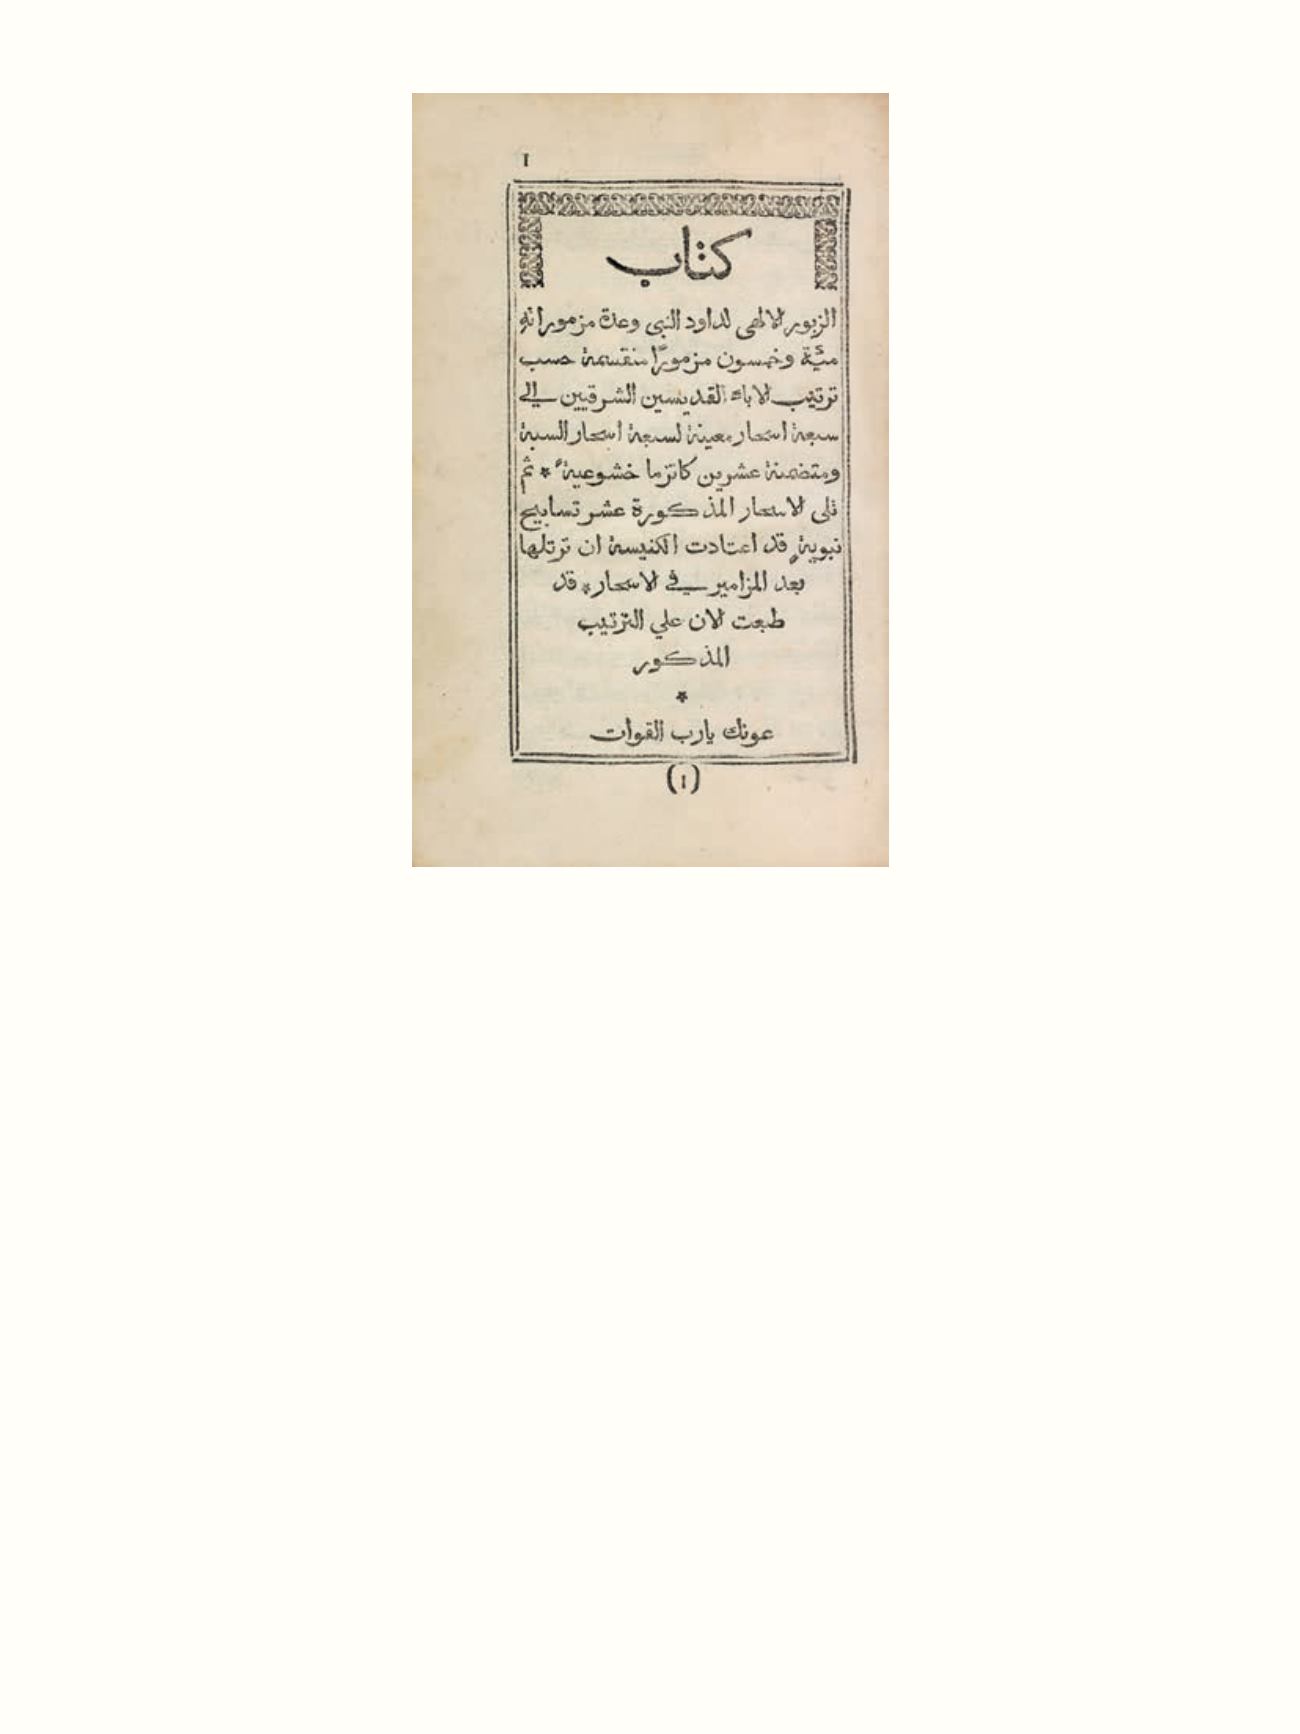 ١
كتاب
الزبور الالهي لداود النبي وعدة مزموراته
ميّة وخمسون مزمورًا منقسمة حسب
ترتيب الاباء القديسين الشرقيين الي
سبعة اسحار معينة لسبعة اسحار السبة
ومتضمنة عشرين كاتزما خشوعية * ثم
تلي الاسحار المذكورة عشر تسابيح
نبوية قد اعتادت الكنيسة ان ترتلها
بعد المزامير في الاسحار * قد
طبعت الان علي الترتيب
المذكور
*
عونك يارب القوات
(١)